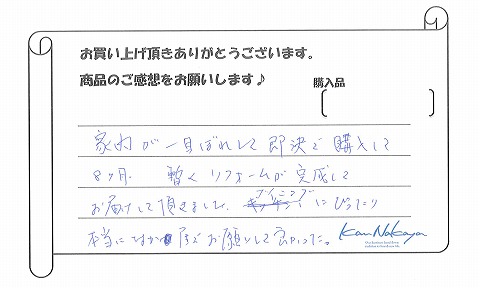 お買い上げ頂きありがとうございます。
商品のご感想をお願いします♪
購入品
家内が一目ぼれして即決で購入して
8ヶ月 暫くリフォームが完成して
お届けして頂きました。ダイニングにぴったり
本当になかお届でお願いして良かった。
KanNakaya